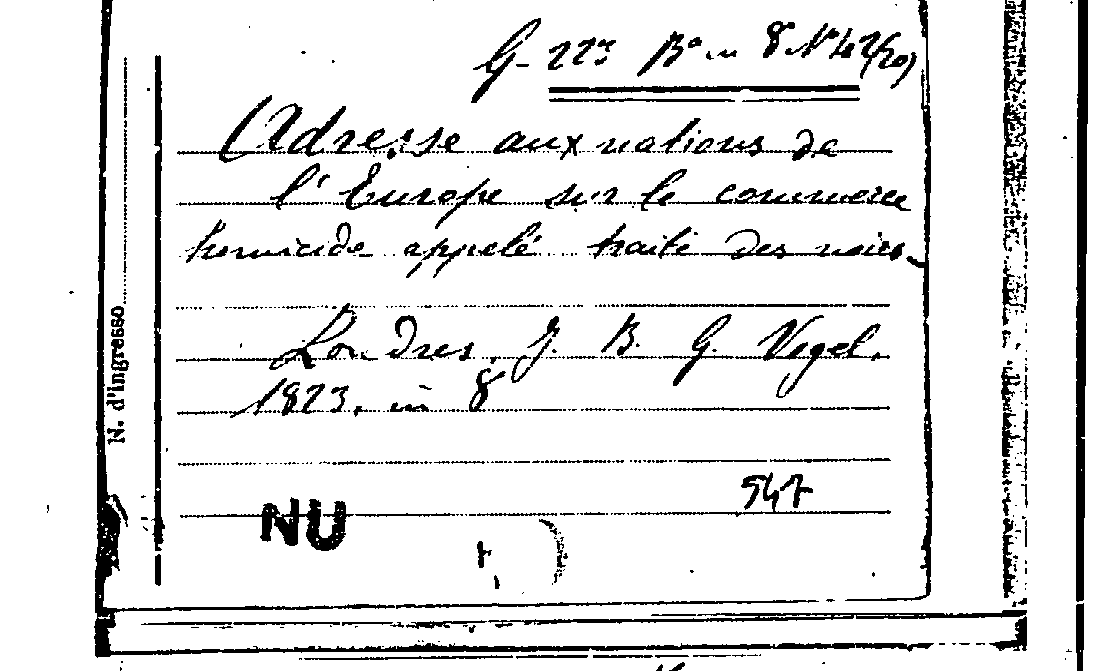 G- 223 Bª in 8 Nº 42(20)
Adresse aux nations de
l'Europe sur le commerce
homicide appelé traité des noirs.
Londres, J. B. G. Vogel,
1823. in 8
547
NU
N. d'ingresso